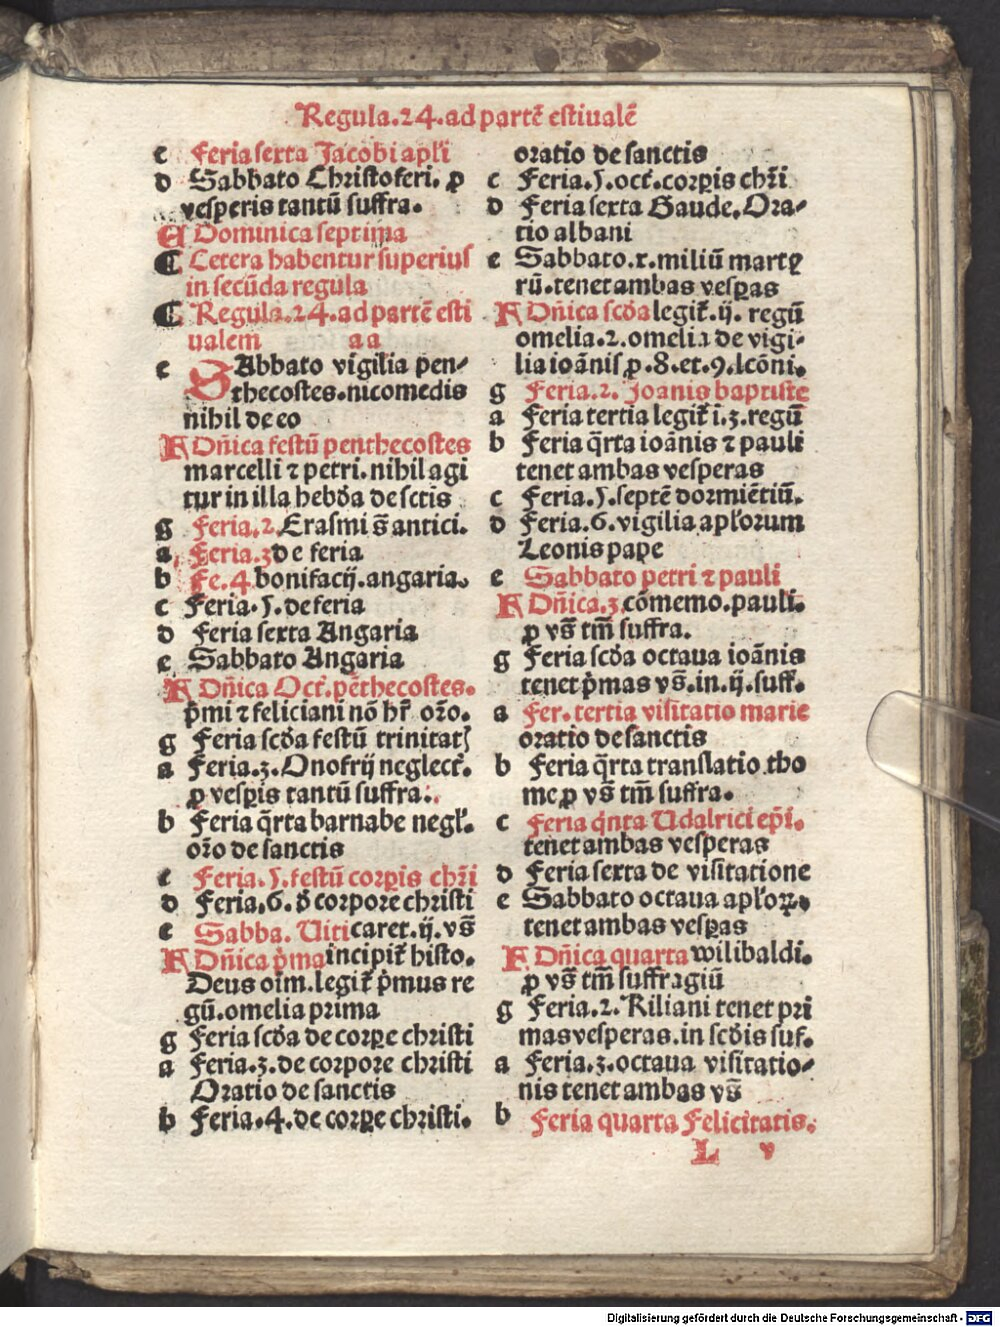 Regula.24.ad partē estiualē
c Feria sexta Jacobi apl'i
d Sabbato Christoferi. ꝓ
vesperis tantū suffra.
A Dominica septima
¶ Cetera habentur superius
in secūda regula
¶ Regula.24.ad partē esti
ualem a a
e SAbbato vigilia pen-
thecostes.nicomedis
nihil de eo
A Dn̄ica festū penthecostes
marcelli ⁊ petri.nihil agi
tur in illa hebd̄a de sctis
g Feria.2.Erasmi s̄ antici.
a Feria.3 de feria
b Fe.4.bonifacij.angaria.
c Feria.5.de feria
d Feria sexta Angaria
e Sabbato Angaria
A Dn̄ica Oct̄.pēthecostes.
p̄mi ⁊ feliciani nō hr̄ oro.
g Feria scd̄a festū trinitatꝭ
a Feria.3.Onofrij neglect̄.
ꝓ vesꝑis tantū suffra.
b Feria q̄rta barnabe negl'.
oro de sanctis
c Feria.5.festū corꝑis chr̄i
d Feria.6.d̄ corpore christi
e Sabba. Uiti caret.ij.vs̄
A Dn̄ica p̄ma incipit̄ histo.
Deus oīm.legit̄ p̄mus re
gū.omelia prima
g Feria scd̄a de corꝑe christi
a Feria.3.de corpore christi
Oratio de sanctis
b Feria.4.de corꝑe christi.
oratio de sanctis
c Feria.5.oct̄.corꝑis chr̄i
d Feria sexta Gaude.Ora-
tio albani
e Sabbato.x.miliū marty
rū.tenet ambas vesꝑas
A Dn̄ica scd̄a legit̄.ij. regū
omelia.2.omelia de vigi-
lia ioānis ꝓ.8.et.9.lcōni.
g Feria.2. Joanis baptiste
a Feria tertia legit̄ i.3.regū
b Feria q̄rta ioānis ⁊ pauli
tenet ambas vesperas
c Feria.5.septē dormiētiū.
d Feria.6.vigilia apl'orum
Leonis pape
e Sabbato petri ⁊ pauli
A Dn̄ica.3.cōmemo.pauli.
ꝓ vs̄ tm̄ suffra.
g Feria scd̄a octaua ioānis
tenet p̄mas vs̄.in.ij.suff.
a Fer.tertia visitatio marie
oratio de sanctis
b Feria q̄rta translatio tho
me ꝓ vs̄ tm̄ suffra.
c Feria q̄nta Udalrici ep̄i.
tenet ambas vesperas
d Feria sexta de visitatione
e Sabbato octaua apl'oꝝ.
tenet ambas vesꝑas
A Dn̄ica quarta wilibaldi.
ꝓ vs̄ tm̄ suffragiū
g Feria.2.Kiliani tenet pri
mas vesperas.in scd̄is suf.
a Feria.3.octaua visitatio-
nis tenet ambas vs̄
b Feria quarta Felicitatis.
L v
Digitalisierung gefördert durch die Deutsche Forschungsgemeinschaft - DFG